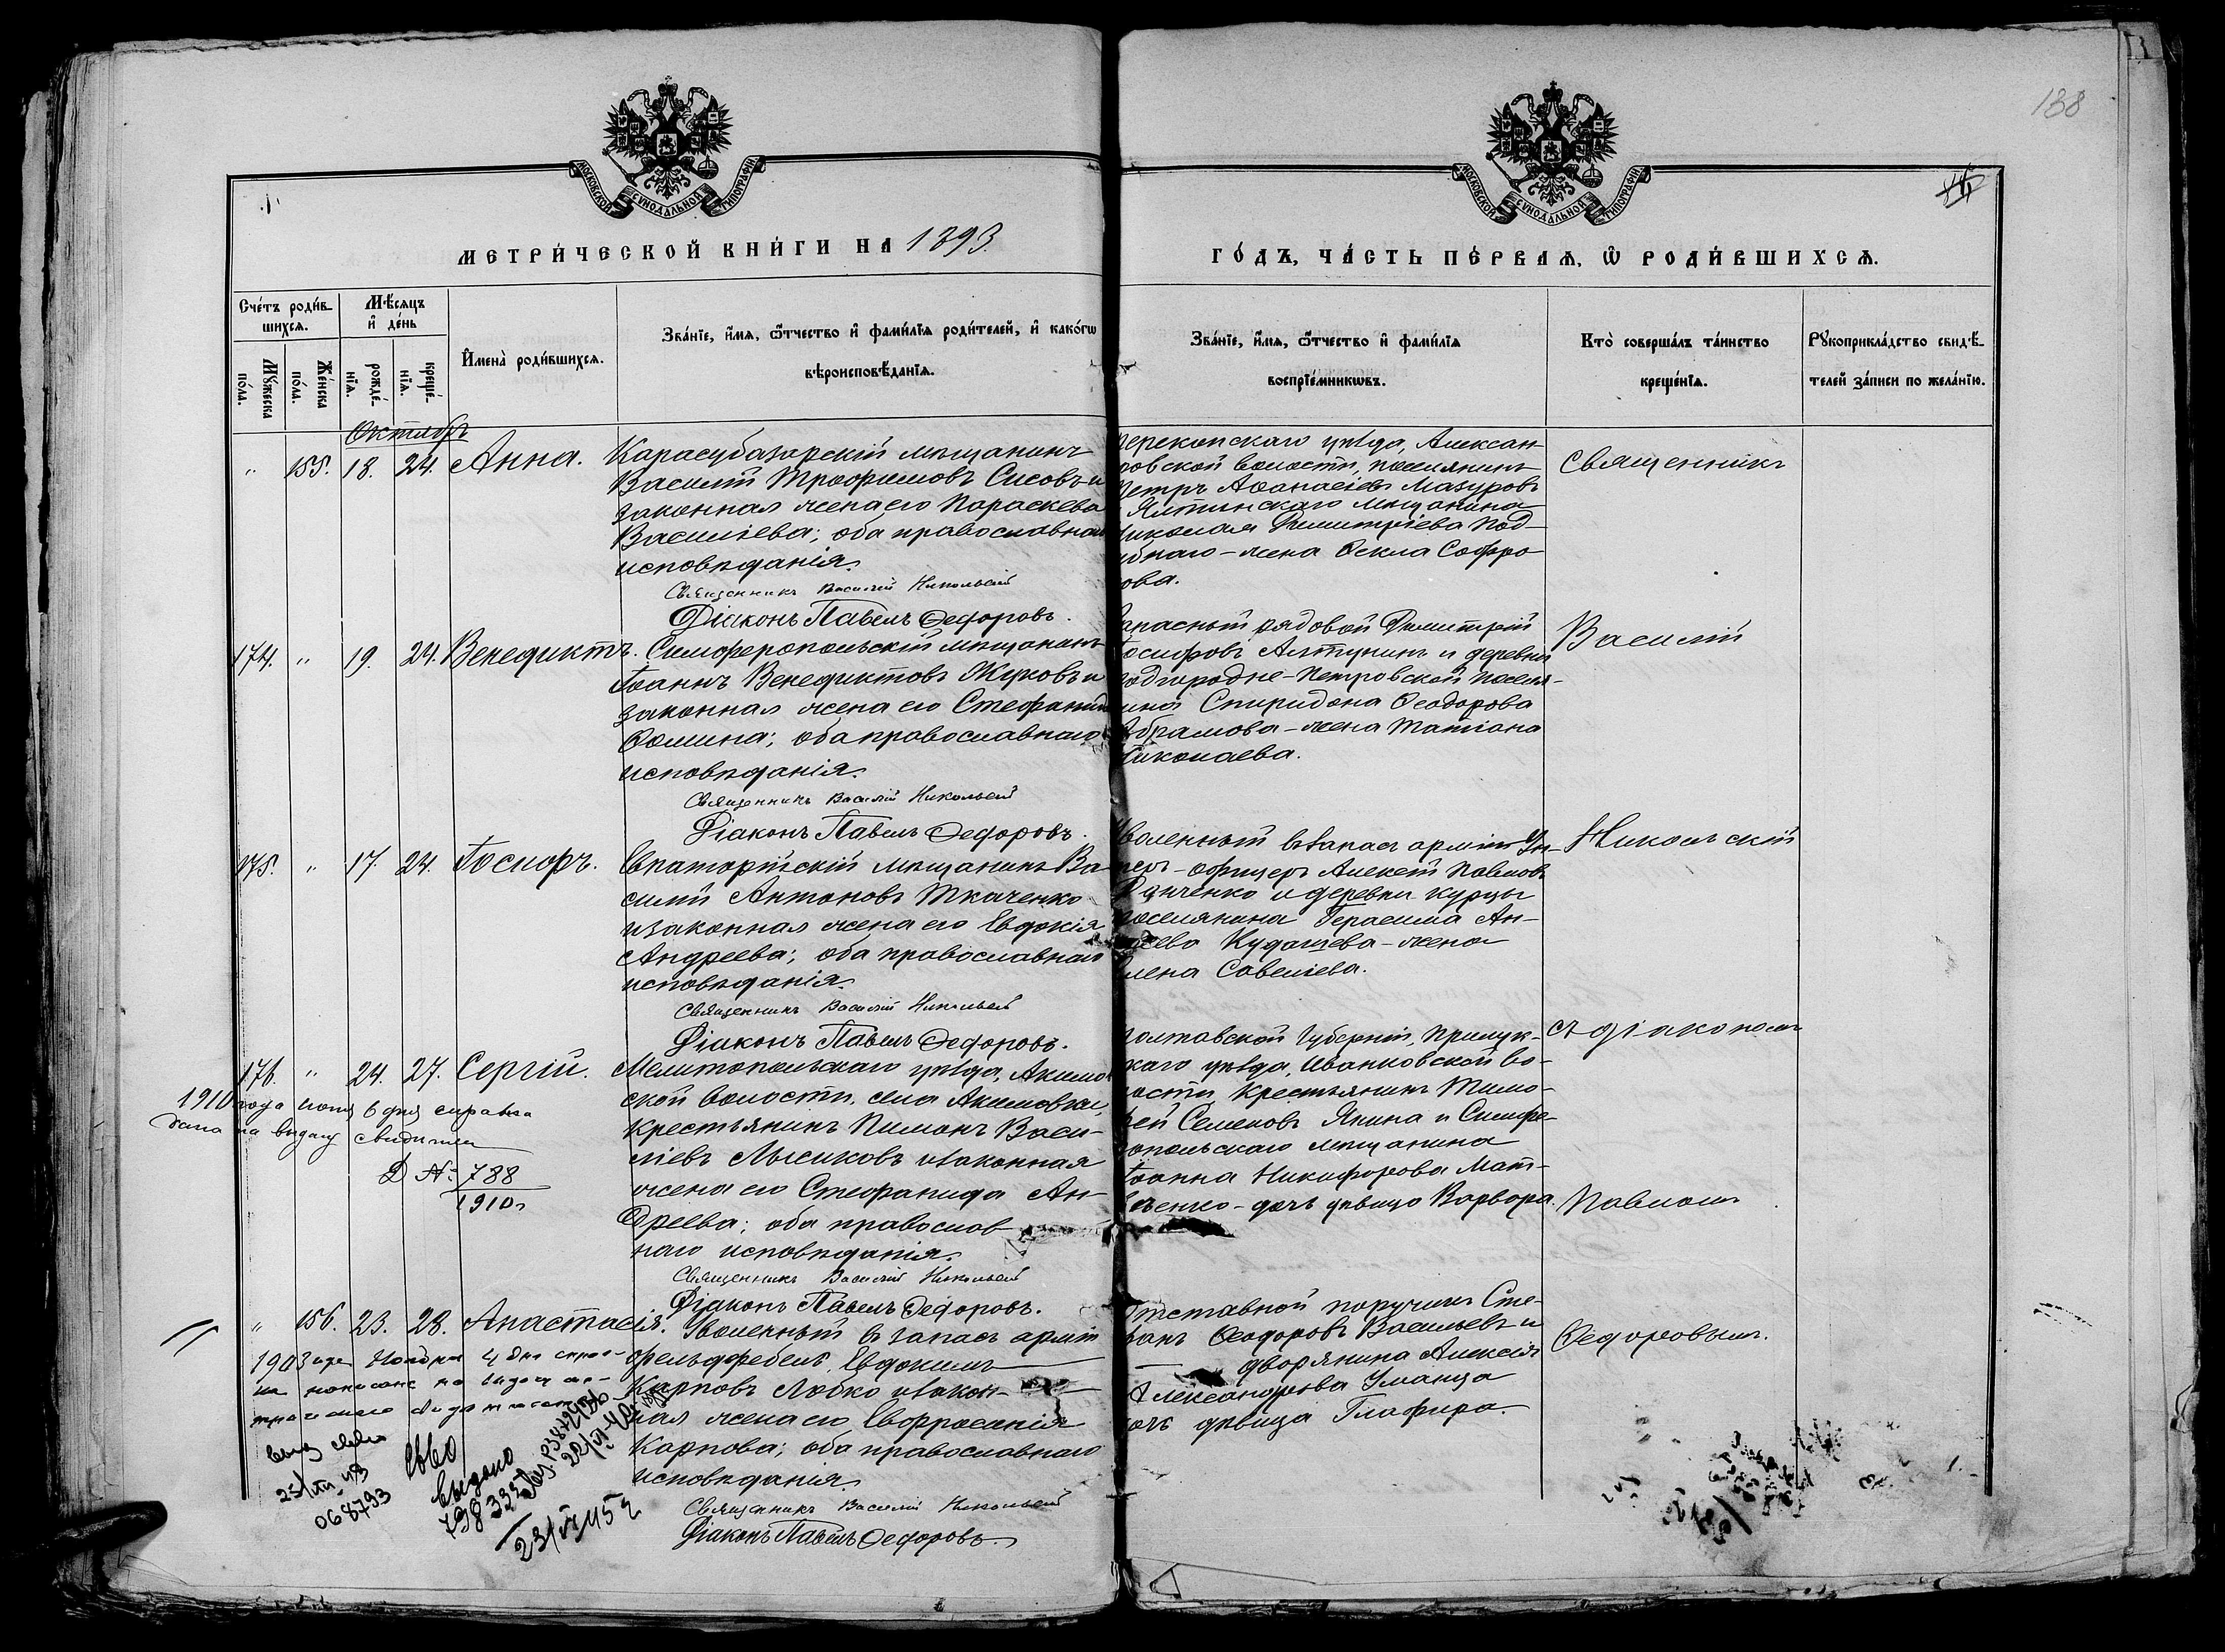 138
МОСКОВСКОЙ СѴНОДАЛЬНОЙ ТИПОГРАФІИ
МОСКОВСКОЙ СѴНОДАЛЬНОЙ ТИПОГРАФІИ
МЕТРИ́ЧЕСКОЙ КНИ́ГИ НА 1893
ГО́ДЪ, ЧА́СТЬ ПЕ́РВАѦ, Ѡ҆ РОДИ́ВШИХСѦ.
Сче́тъ роди́в-
шихсѧ.
Мꙋ́жеска
по́ла.
Же́нска
по́ла.
Мѣ́сяцъ
и҆ де́нь
рожде́-
нїѧ.
креще́-
нїѧ.
И҆мена̀ роди́вшихсѧ.
Зва́нїе, и҆́мѧ, ѻ҆́тчество и҆ фами́лїѧ роди́телей, и҆ како́гѡ
вѣроисповѣ́данїѧ.
Зва́нїе, и҆́мѧ, ѻ҆́тчество и҆ фами́лїѧ
воспрїе́мникѡвъ.
Кто̀ соверша́лъ та́инство
креще́нїѧ.
Рꙋкоприкла́дство свидѣ́-
телей за́писи по жела́нїю.
Октябрь
" 155. 18. 24. Анна.
Карасубазарскій мѣщанинъ
Василій Трофимовъ Сисовъ и
законная жена его Параскева
Василіева; оба православнаго
исповѣданія.
Священникъ Василій Никольскій
Діаконъ Павелъ Ѳедоровъ.
Перекопскаго уѣзда, Алексан-
ровской волости, поселянинъ
Петръ Аѳанасіевъ Мазуровъ
Ялтинскаго мѣщанина
Николая Димитріева Под-
убнаго - жена Ѳекла Софро-
ова.
Священникъ
174. " 19. 24. Венедиктъ.
Симферопольскій мѣщанинъ
Іоаннъ Венедиктовъ Жуковъ и
законная жена его Стефанида
Ѳомина; оба православнаго
исповѣданія.
Священникъ Василій Никольскій
Діаконъ Павелъ Ѳедоровъ.
Запасный рядовой Димитрій
Іосифовъ Алтунинъ и деревни
Подгородне-Петровской поселя-
нина Спиридона Ѳеодорова
Абрамова - жена Татіана
Николаева.
Василій
175. " 17. 24. Іосифъ.
Евпаторійскій мѣщанинъ Ва-
силій Антоновъ Ткаченко
и законная жена его Евдокія
Андреева; оба православнаго
исповѣданія.
Священникъ Василій Никольскій
Діаконъ Павелъ Ѳедоровъ.
Уволенный въ запасъ арміи Ун-
теръ-офицеръ Алексѣй Павловъ
и деревни Курцы
поселянина Герасима Ан-
Кудашева - жена
Елена Савеліева.
Никольскій
176. " 24. 27. Сергій.
Мелитопольскаго уѣзда, Акимов
ской волости, села Акимовки,
крестьянинъ Пименъ Васи-
ліевъ Лысиковъ и законная
жена его Стефанида Ан-
дреева; оба православ-
наго исповѣданія.
Священникъ Василій Никольскій
Діаконъ Павелъ Ѳедоровъ.
Полтавской Губерніи, Прилук-
скаго уѣзда, Иванковской во-
лости крестьянинъ Тимо-
фей Семеновъ Якина и Симфе-
ропольскаго мѣщанина
Іоанна Никифорова Мат-
вѣенко - дочь дѣвица Варвара.
съ діакономъ
Павломъ
1910 года 6 дня справка
дана на выдачу
№ 788
1910
" 156. 23. 28. Анастасія.
Уволенный въ запасъ арміи
фельдфебель Евдокимъ
Карповъ Лобко и закон-
ная жена его Евфросинія
Карпова; оба православнаго
исповѣданія.
Священникъ Василій Никольскій
Діаконъ Павелъ Ѳедоровъ.
Отставной поручикъ Сте-
фанъ Ѳеодоровъ Васильевъ и
дворянина Алексія
Александрова Уманца
дочь дѣвица Глафира.
Ѳедоровымъ.
1903 года Ноября 4 дня справ-
ка написана на выдачу ме-
068793
Выдано
798333
23/VI 45 г